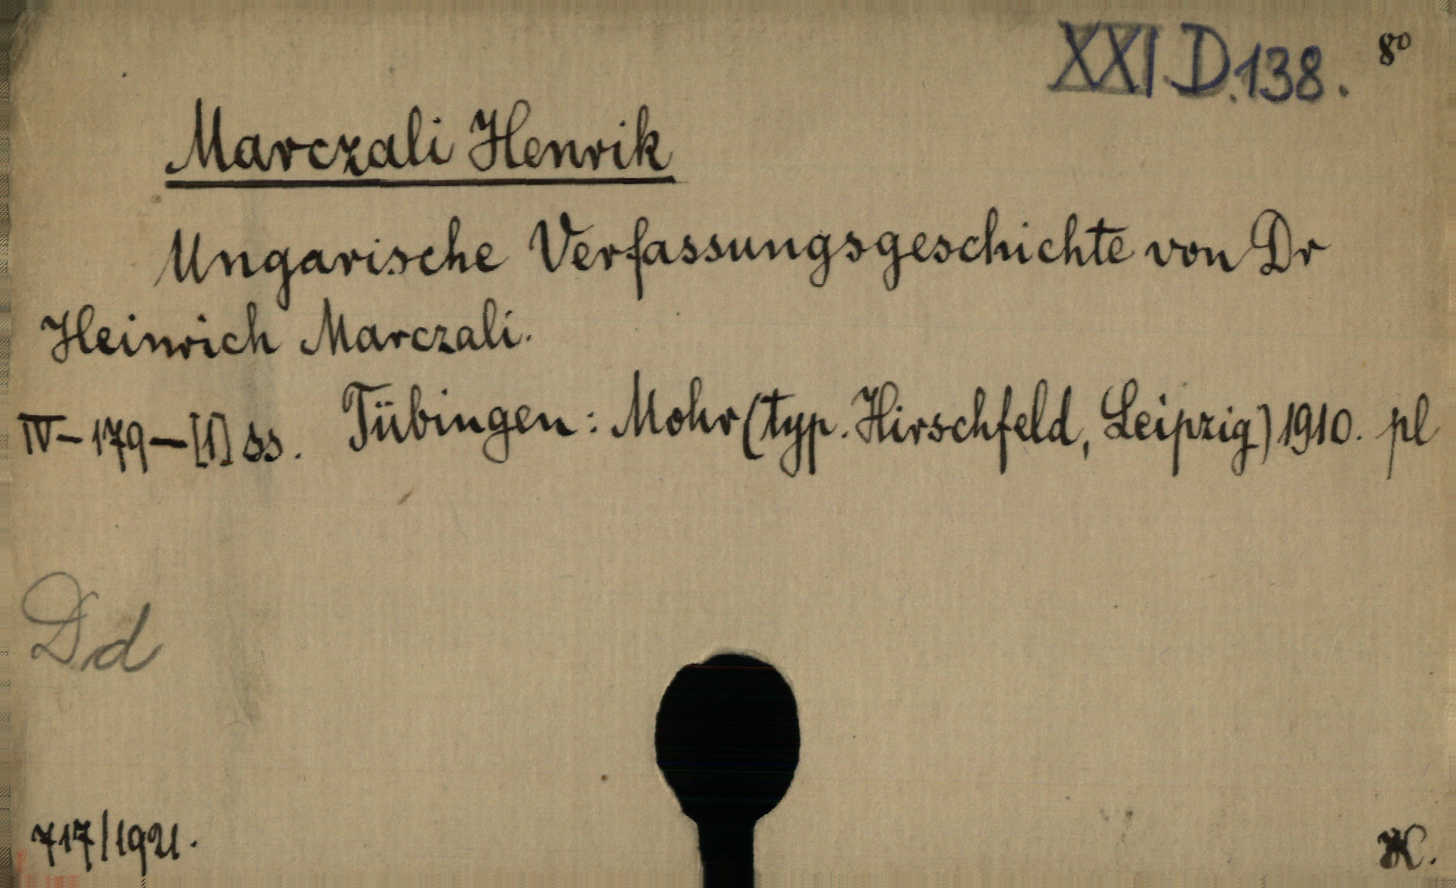 XXI.D.138. 8º
Marczali Henrik
Ungarische Verfassungsgeschichte von Dr
Heinrich Marczali.
IV–179–[1] ss. Tübingen: Mohr (typ. Hirschfeld, Leipzig) 1910. pl
Dd
717/1921.
K.